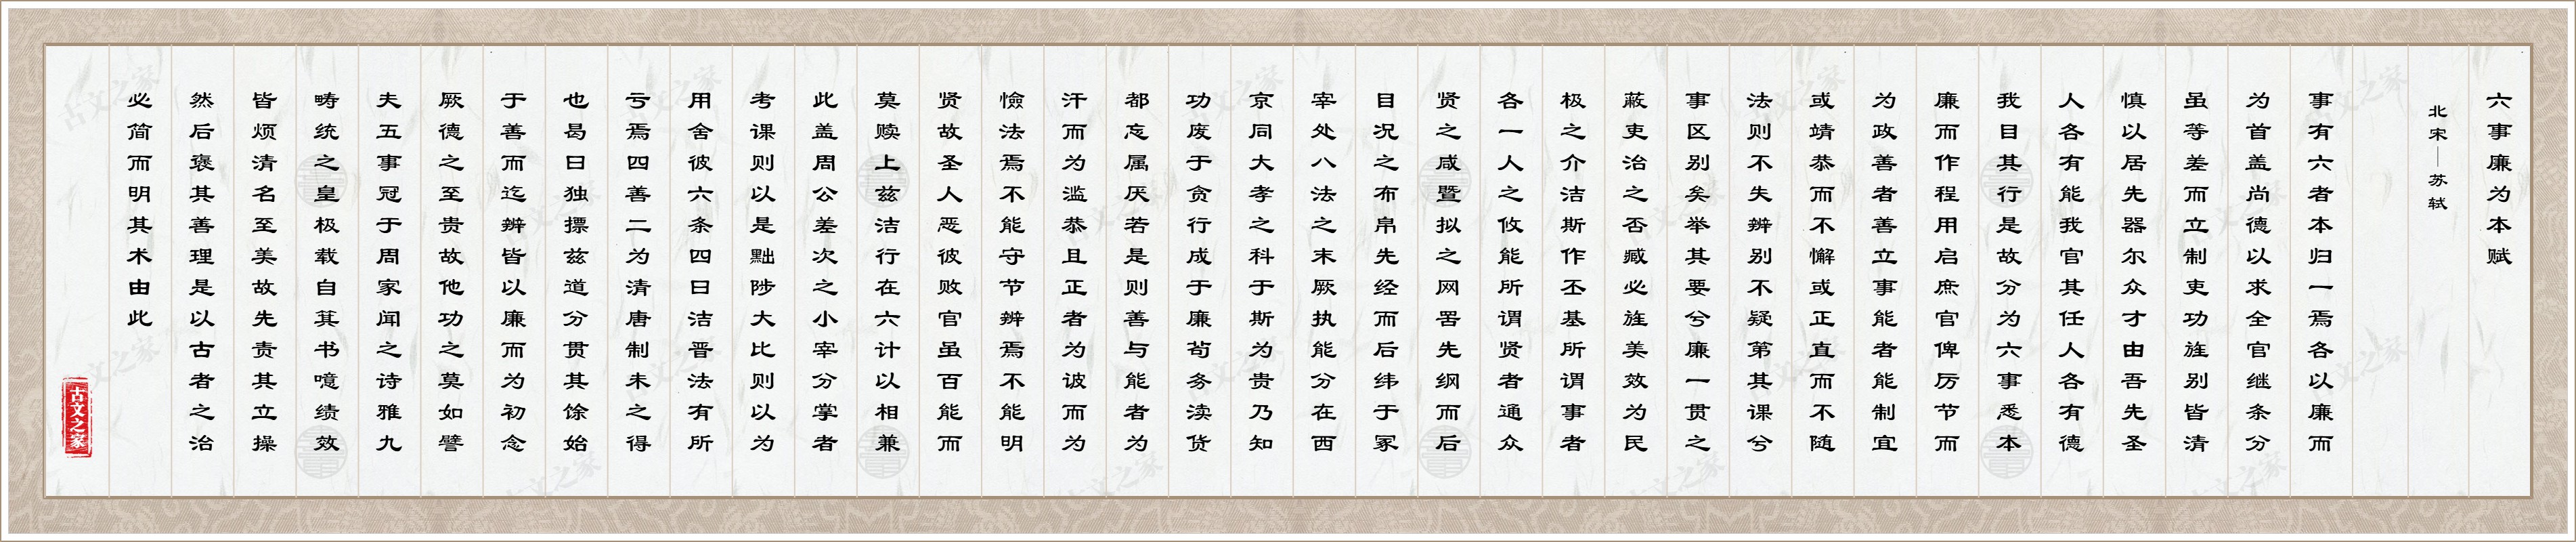 六事廉为本赋
北宋—苏轼
事有六者本归一焉各以廉而
为首盖尚德以求全官继条分
虽等差而立制吏功旌别皆清
慎以居先器尔众才由吾先圣
人各有能我官其任人各有德
我目其行是故分为六事悉本
廉而作程用启庶官俾厉节而
为政善者善立事能者能制宜
或靖恭而不懈或正直而不随
法则不失辨别不疑第其课兮
事区别矣举其要兮廉一贯之
蔽吏治之否臧必旌美效为民
极之介洁斯作丕基所谓事者
各一人之攸能所谓贤者通众
贤之咸暨拟之网罟先纲而后
目况之布帛先经而后纬于冢
宰处八法之末厥执能分在西
京同大孝之科于斯为贵乃知
功废于贪行成于廉苟务渎货
都忘属厌若是则善与能者为
汗而为滥恭且正者为诐而为
憸法焉不能守节辨焉不能明
贤故圣人恶彼败官虽百能而
莫赎上兹洁行在六计以相兼
此盖周公差次之小宰分掌者
考课则以是黜陟大比则以为
用舍彼六条四曰洁晋法有所
亏焉四善二为清唐制未之得
也曷曰独摽兹道分贯其馀始
于善而迄辨皆以廉而为初念
厥德之至贵故他功之莫如譬
夫五事冠于周家闻之诗雅九
畴统之皇极载自箕书噫绩效
皆烦清名至美故先责其立操
然后褒其善理是以古者之治
必简而明其术由此
古文之家